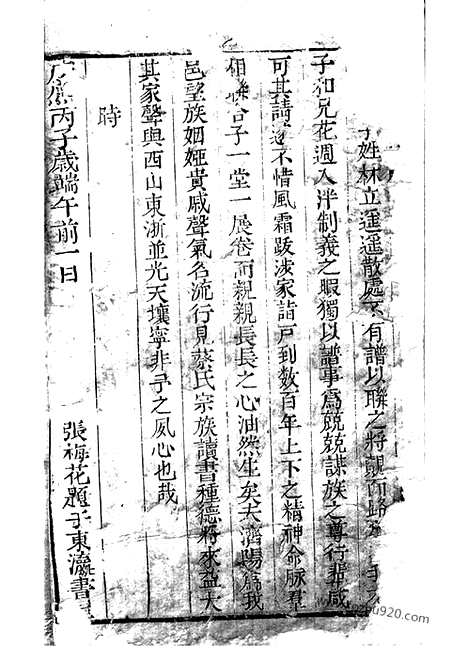 姓林立遥遥散處不有譜以聯之將覿而
子和兄花週入泮制義之暇獨以譜事爲兢兢謀族之尊行輩咸
可其請遂不惜風霜跋涉家詣戶到數百年上下之精神命脉羣
相聯合于一堂一展卷而親親長長之心油然生矣夫濟陽爲我
邑望族姻婭貴戚聲氣名流行見蔡氏宗族讀書種德將來益大
其家聲與西山東浙並光天壤寧非予之夙心也哉
時
丙子歲端午前一日
張梅花題于東瀛書
920.com